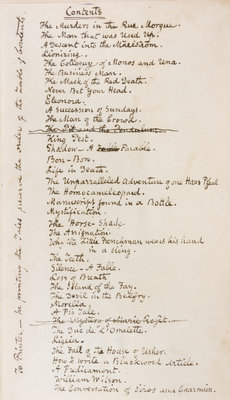 Contents
The Murders in the Rue Morgue.
The Man that was Used up.
A Descent into the Maelström.
Lionizing.
The Colloquy of Monos and Una.
The Business Man.
The Mask of the Red Death.
Never Bet Your Head.
Eleonora.
A Succession of Sundays.
The Man of the Crowd.
The Pit and the Pendulum.
King Pest.
Shadow — A Parable.
Bon-Bon.
Life in Death.
The Unparralleled Adventure of one Hans Pfaal.
The Homocameleopard.
Manuscript found in a Bottle.
Mystification.
The Horse-Shade.
The Assignation.
Why the Little Frenchman wears his hand
in a sling.
The Teeth.
Silence — A Fable.
Loss of Breath
The Island of the Fay.
The Devil in the Belfry.
Morella.
A Pig Tale.
The Mystery of Marie Rogêt.
The Duc de L'Omelette.
Ligeia.
The Fall of the House of Usher.
How to write a Blackwood Article.
A Predicament.
William Wilson.
The Conversation of Eiros and Charmion.
To Printer — In printing the Tales preserve the order of the Table of Contents.